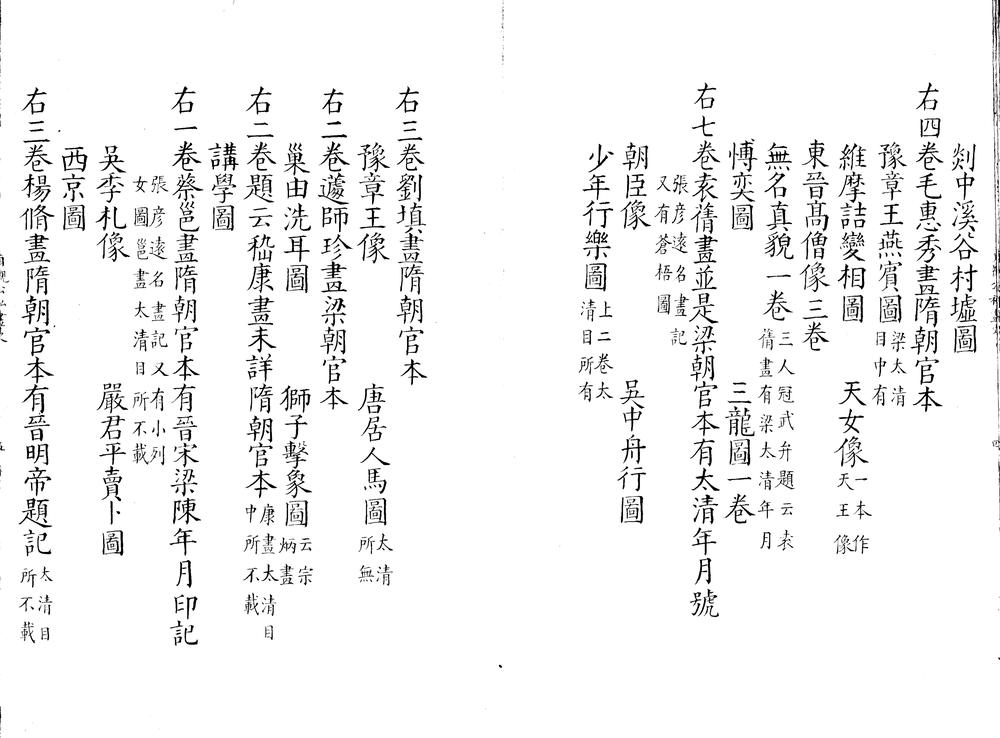 剡中溪谷村墟圖
右四卷毛惠秀畫隋朝官本
豫章王燕賓圖梁太清目中有
維摩詰變相圖 天女像一本作天王像
東晉高僧像三卷
無名真貌一卷三人冠武弁題云袁蒨畫有梁太清年月
博奕圖 三龍圖一卷
右七卷袁蒨畫並是梁朝官本有太清年月號
張彥遠名畫記又有蒼梧圖
朝臣像 吳中舟行圖
少年行樂圖上二卷太清目所有
右三卷劉填畫隋朝官本
豫章王像 唐居人馬圖太清所無
右二卷蘧師珍畫梁朝官本
巢由洗耳圖 獅子擊象圖云宗炳畫
右二卷題云嵇康畫未詳隋朝官本康畫太清目中所不載
講學圖
右一卷蔡邕畫隋朝官本有晉宋梁陳年月印記
張彥遠名畫記又有小列女圖邕畫太清目所不載
吳季札像 嚴君平賣卜圖
西京圖
右三卷楊脩畫隋朝官本有晉明帝題記太清目所不載